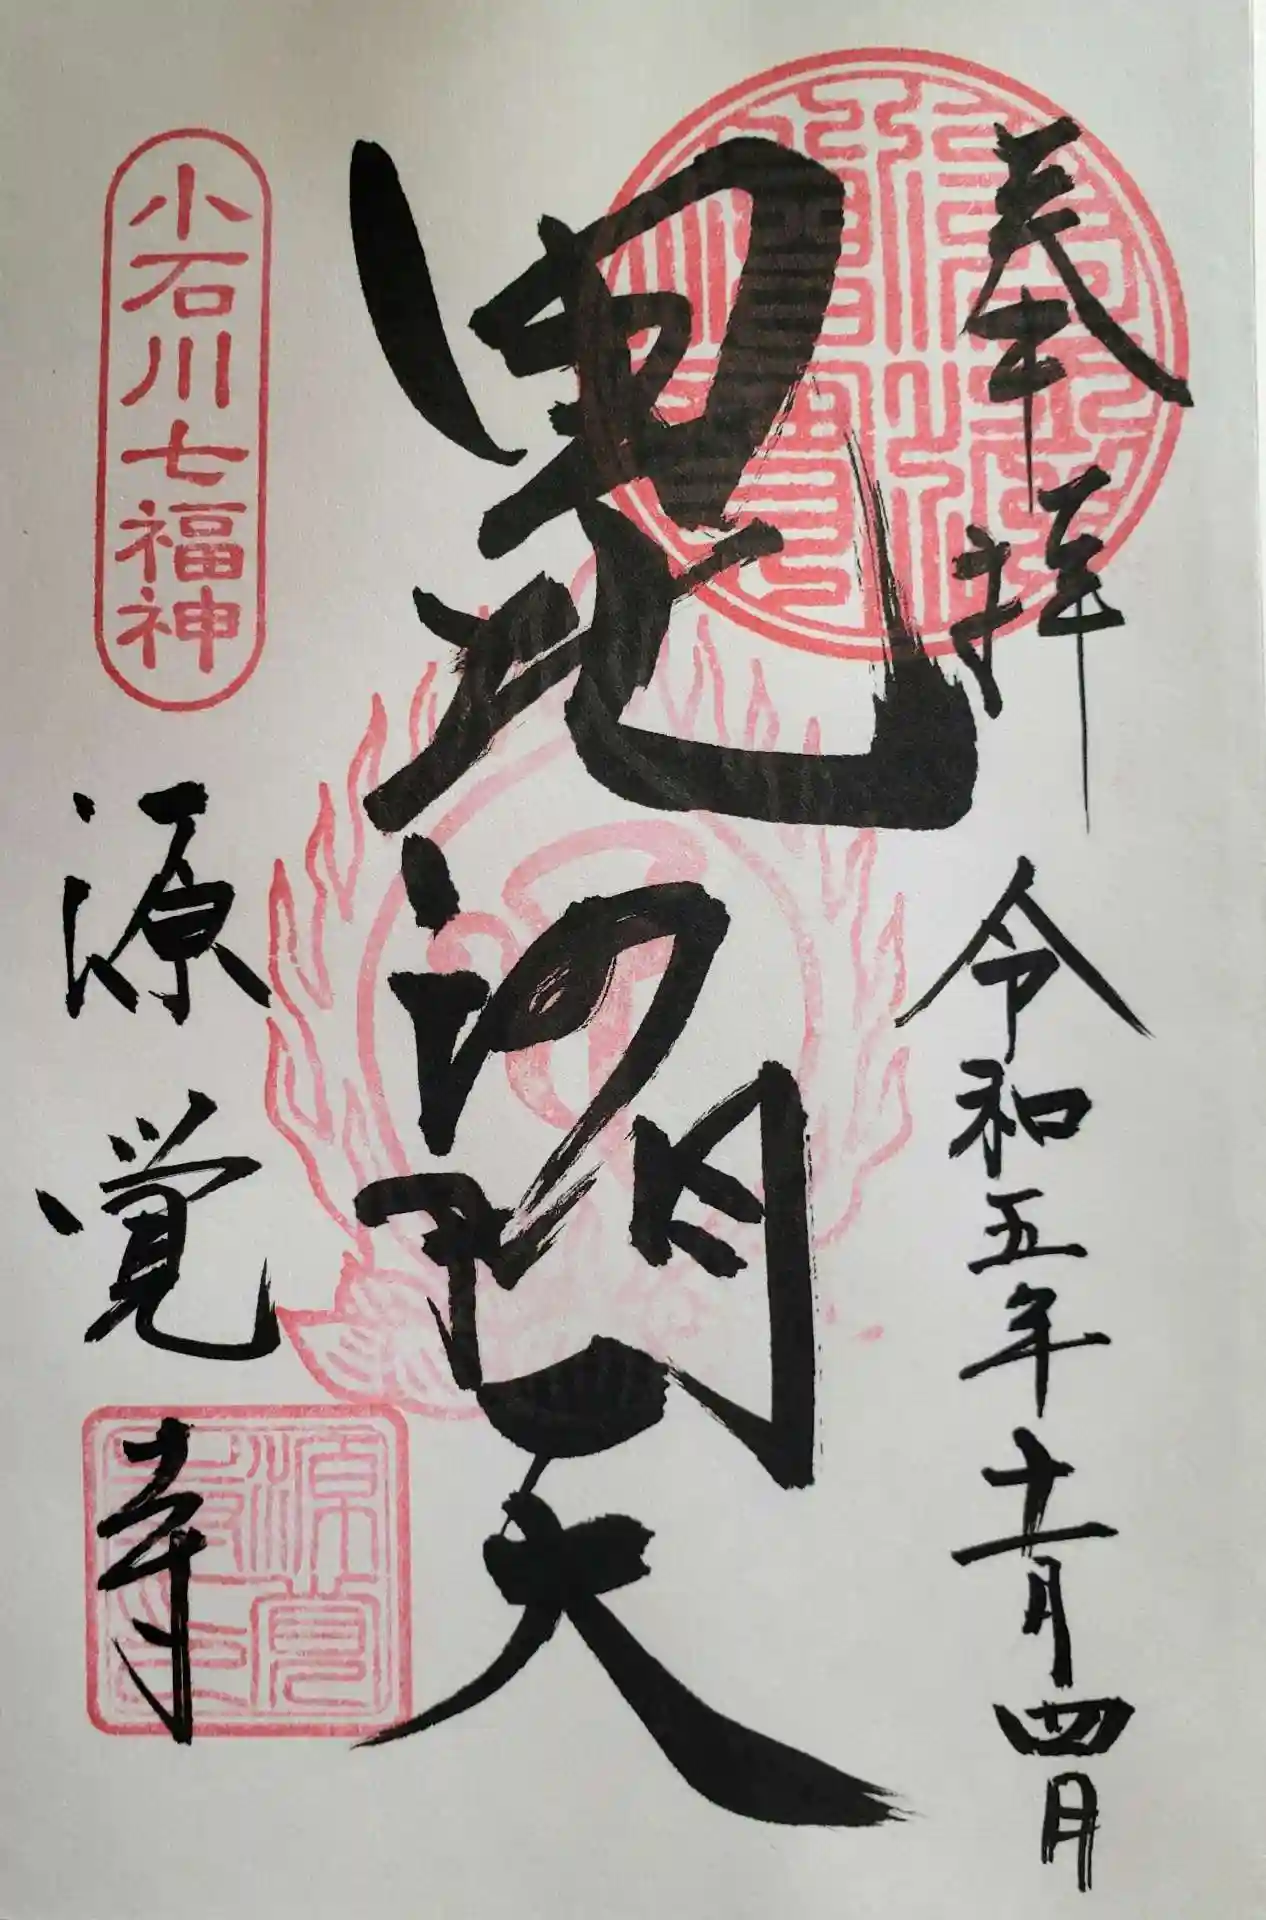 奉拝
令和五年十一月四日
毘沙門天
小石川七福神
源覚寺
源覚寺印